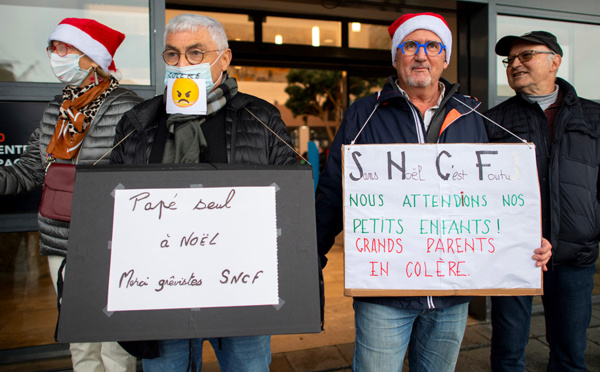 COLÈRE
Papé seul
à NOËL
Merci grévistes SNCF
Sans Noël C'est Foutu
NOUS ATTENDIONS NOS
PETITS ENFANTS !
GRANDS PARENTS
EN COLÈRE.